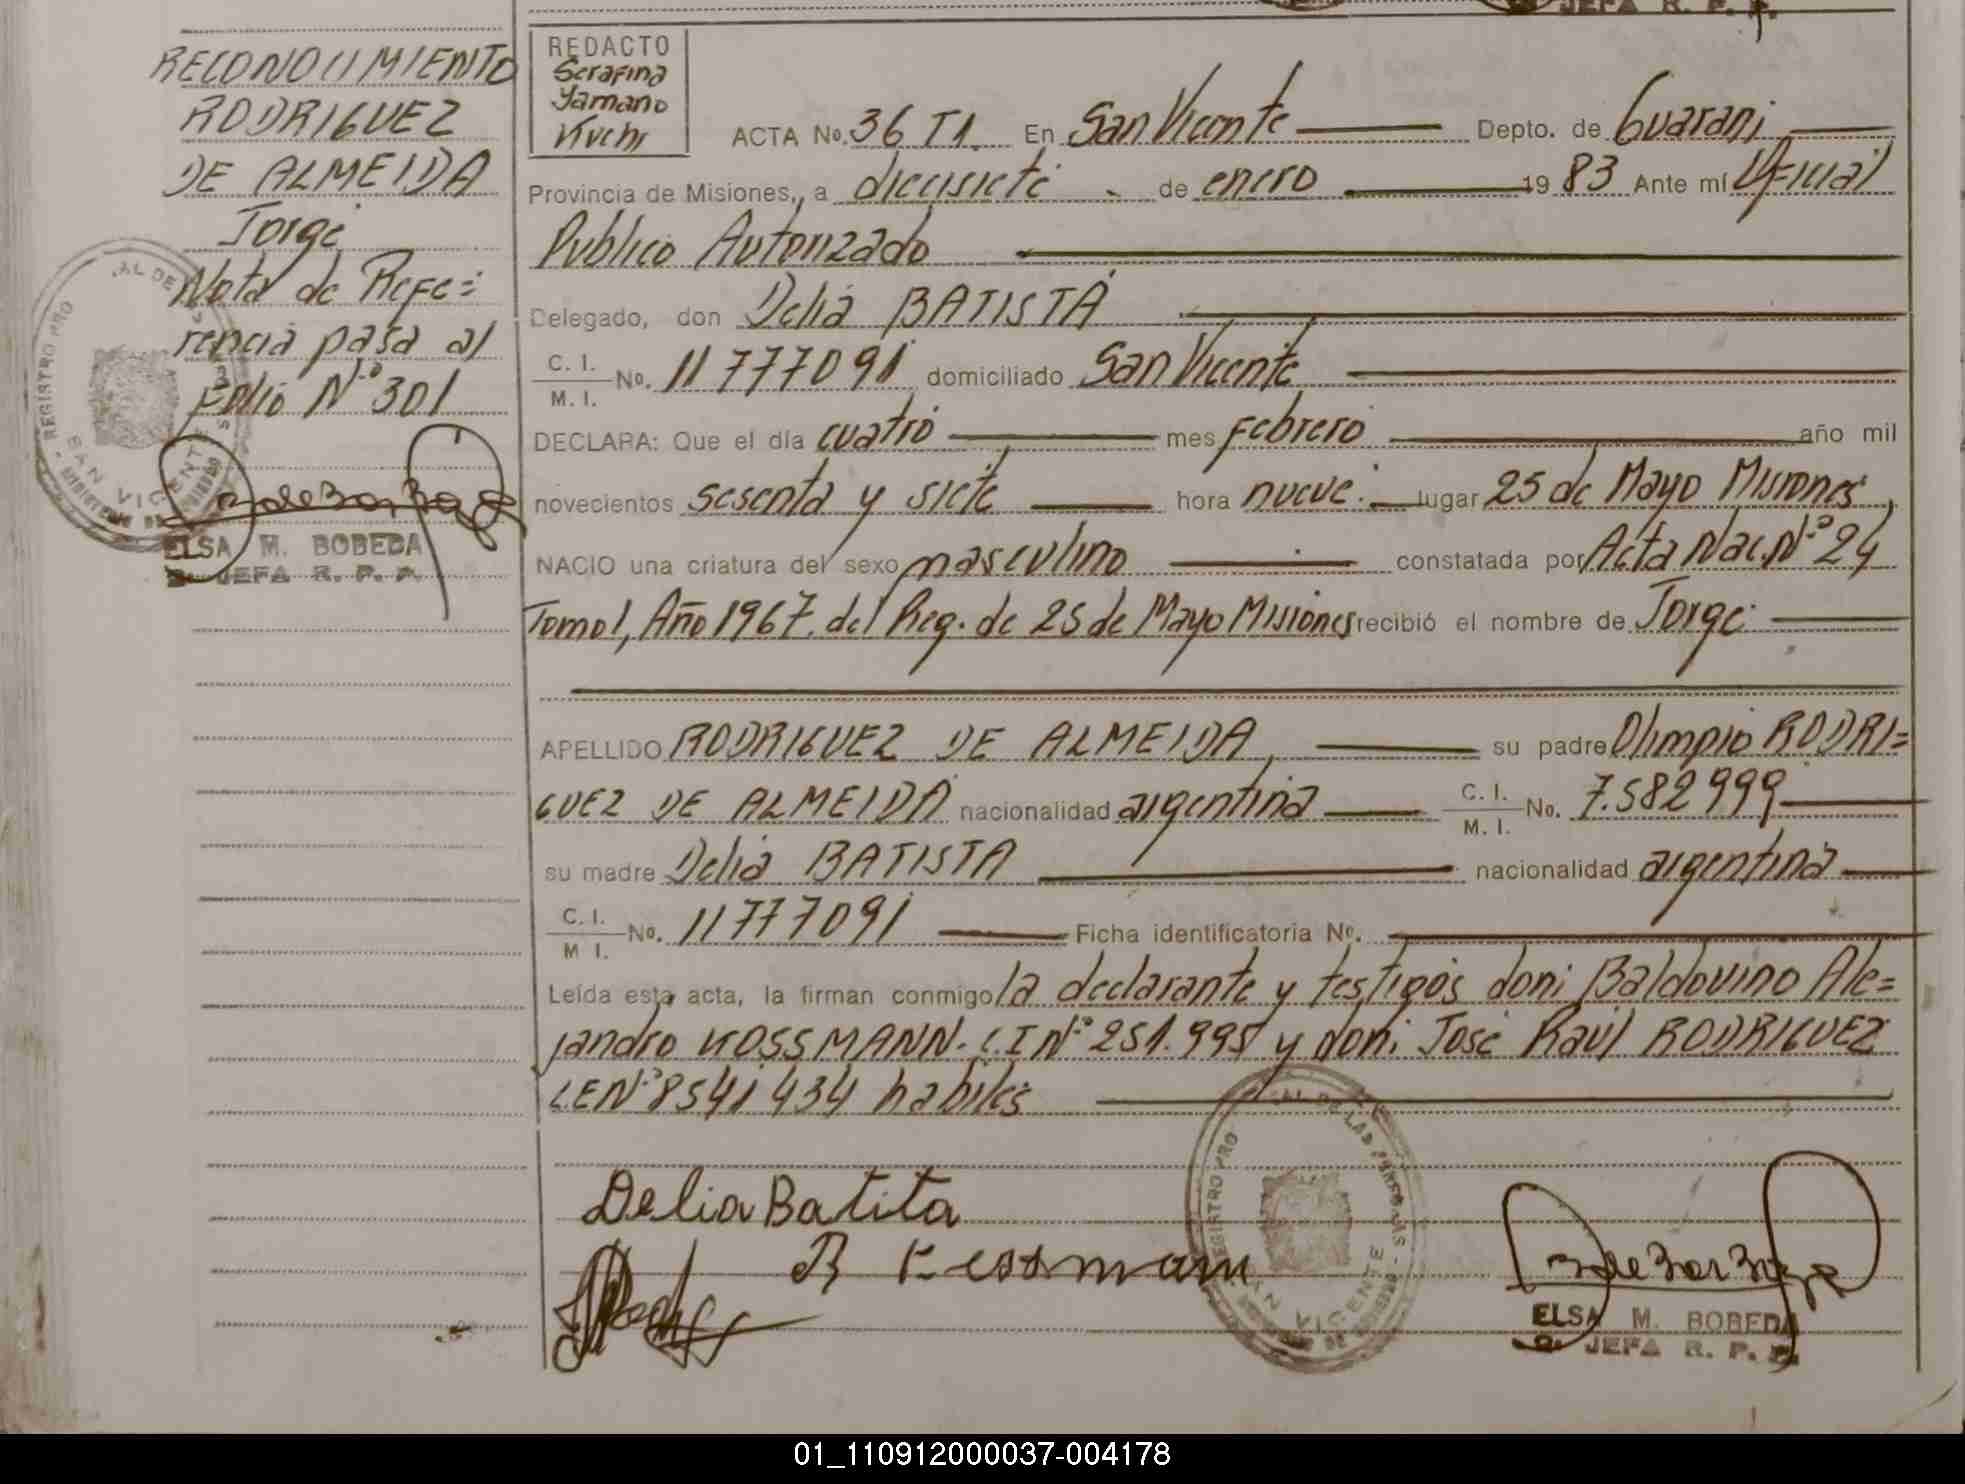 JEFA R. P. P.
RECONOCIMIENTO
RODRIGUEZ
DE ALMEIDA
Jorge
Nota de Refe=
rencia pasa al
Folio Nº 301
ELSA M. BOBEDA
S. JEFA R. P. P.
REDACTO
Serafina
Yamano
Kuchi
ACTA No. 36 T1. En San Vicente Depto. de Guarani
Provincia de Misiones, a diecisiete de enero 19 83 Ante mí Oficial
Publico Autorizado
Delegado, don Delia BATISTA
C. I. / M. I. No. 11 777 091 domiciliado San Vicente
DECLARA: Que el día cuatro mes Febrero año mil
novecientos sesenta y siete hora nueve. lugar 25 de Mayo Misiones
NACIO una criatura del sexo masculino constatada por Acta Nac. Nº 24
Tomo 1, Año 1967. del Reg. de 25 de Mayo Misiones recibió el nombre de Jorge
APELLIDO RODRIGUEZ DE ALMEIDA su padre Olimpio RODRI=
GUEZ DE ALMEIDA nacionalidad argentina C. I. / M. I. No. 7.582 999
su madre Delia BATISTA nacionalidad argentina
C. I. / M I. No. 11 777 091 Ficha identificatoria No.
Leída esta acta, la firman conmigo la declarante y testigos don: Baldovino Ale=
jandro KOSSMANN. C.I Nº 251.995 y don: José Raúl RODRIGUEZ
L E Nº 8541 434 habiles
Delia Batita
ELSA M. BOBEDA
S. JEFA R. P. P.
SAN VICENTE
01_110912000037-004178